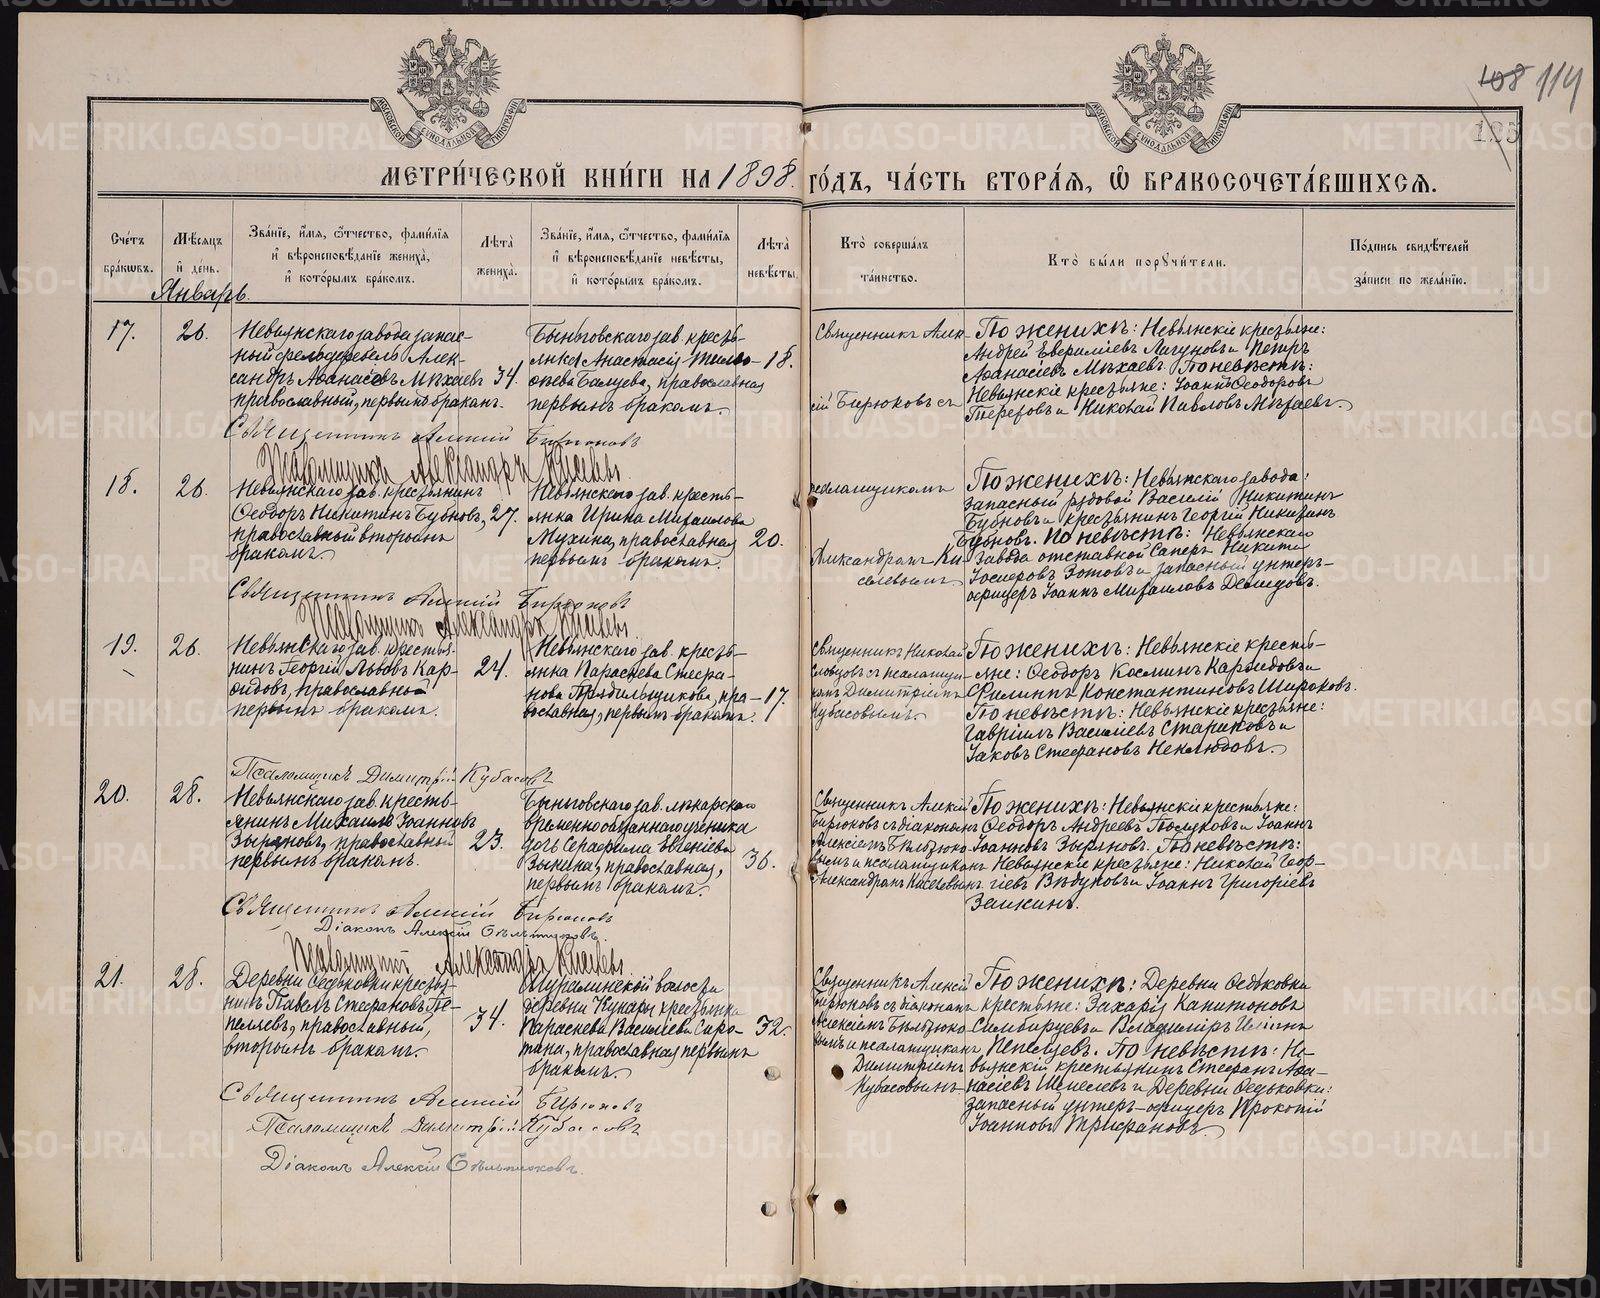 108 114
125
МОСКОВСКОЙ СѴНОДАЛЬНОЙ ТИПОГРАФІИ
МОСКОВСКОЙ СѴНОДАЛЬНОЙ ТИПОГРАФІИ
МЕТРИ́ЧЕСКОЙ КНИ́ГИ НА 1898. ГО́ДЪ, ЧА́СТЬ ВТОРА́Ѧ, Ѿ БРАКОСОЧЕТА́ВШИХСѦ.
Сче́тъ бра́кѡвъ.
Мѣ́сяцъ и҆ де́нь.
Январь.
Зва́нїе, и҆́мѧ, ѻ҆́тчество, фамилїѧ и҆ вѣроисповѣ́данїе жениха̀, и҆ кото́рымъ бра́комъ.
Лѣ́та̀ жениха̀.
Зва́нїе, и҆́мѧ, ѻ҆́тчество, фамилїѧ и҆ вѣроисповѣ́данїе невѣ́сты, и҆ кото́рымъ бра́комъ.
Лѣ́та̀ невѣ́сты.
Кто̀ соверша́лъ та́инство.
Кто̀ бы́ли порꙋчи́тели.
По́дпись свидѣ́телей за́писи по жела́нїю.
17.
26.
Невьянскаго завода запас-
ный фельдфебель Алек-
сандръ Аѳанасіевъ Мѣхаевъ
православный, первымъ бракомъ.
34.
Быньговскаго зав. кресть-
янка Анастасія
православная
первымъ бракомъ.
18.
Священникъ Алек-
сій Бирюковъ съ
По женихѣ: Невьянскіе крестьяне:
Андрей и Петръ
Аѳанасіевъ Мѣхаевъ. По невѣстѣ:
Невьянскіе крестьяне: Іоаннъ Ѳеодоровъ
и Николай Павловъ
Священникъ Алексій Бирюковъ
Псаломщикъ Александръ Киселевъ
18.
26.
Невьянскаго зав. крестьянинъ
Ѳеодоръ Никитинъ Бубновъ,
православный вторымъ
бракомъ.
27.
Невьянскаго зав. кресть-
янка Ирина Михаилова
Мухина, православная
первымъ бракомъ.
20.
псаломщикомъ
Александромъ Ки-
селевымъ.
По женихѣ: Невьянскаго завода:
Запасный рядовой Василій Никитинъ
Бубновъ и крестьянинъ Георгій Никитинъ
Бубновъ. По невѣстѣ: Невьянскаго
завода отставной Саперъ Никита
Зотовъ и запасный унтеръ-
офицеръ Іоаннъ Михаиловъ Демидовъ.
Священникъ Алексій Бирюковъ
Псаломщикъ Александръ Киселевъ
19.
26.
Невьянскаго зав. кресть-
нинъ Георгій Львовъ Кар-
православной
первымъ бракомъ.
24.
Невьянскаго зав. кресть-
янка Параскева Стефа-
нова пра-
вославная, первымъ бракомъ.
17.
Священникъ Николай
Словцовъ съ псаломщи-
комъ Димитріемъ
Кубасовымъ.
По женихѣ: Невьянскіе кресть-
яне: Ѳеодоръ Космин и
Филиппъ Константиновъ Широковъ.
По невѣстѣ: Невьянскіе крестьяне:
Гавріилъ Василіевъ Стариковъ и
Іаковъ Стефановъ Неклюдовъ.
Псаломщикъ Димитрій Кубасовъ
20.
28.
Невьянскаго зав. кресть-
янинъ Михаилъ Іоанновъ
Зыряновъ, православный
первымъ бракомъ.
23.
Быньговскаго зав. лѣкарскаго
временнообязаннаго ученика
дочь Серафима Евгеніева
Зыкина, православная,
первымъ бракомъ.
36.
Священникъ Алексій
Бирюковъ съ діакономъ
Алексіемъ
вымъ и псаломщикомъ
Александромъ Киселевымъ
По женихѣ: Невьянскіе крестьяне:
Ѳеодоръ Андреевъ и Іоаннъ
Іоанновъ Зыряновъ. По невѣстѣ:
Невьянскіе крестьяне: Николай Геор-
гіевъ и Іоаннъ Григоріевъ
Заикинъ.
Священникъ Алексій Бирюковъ
Діаконъ Алексій
Псаломщикъ Александръ Киселевъ
21.
28.
Деревни Ѳедьковки кресть-
нинъ Павелъ Стефановъ Пе-
пеляевъ, православный,
вторымъ бракомъ.
34.
Мурзинской волости
деревни крестьянка
Параскева Василіева Сыро-
православная первымъ
бракомъ.
32.
Священникъ Алексій
Бирюковъ съ діакономъ
Алексіемъ
вымъ и псаломщикомъ
Димитріемъ
Кубасовымъ
По женихѣ: Деревни Ѳедьковки
крестьяне: Захарія Капитоновъ
и Владиміръ
Пепеляевъ. По невѣстѣ: Не-
вьянскій крестьянинъ Стефанъ Аѳа-
насіевъ и Деревни Ѳедьковки:
запасный унтеръ-офицеръ Прокопій
Іоанновъ Трифановъ.
Священникъ Алексій Бирюковъ
Псаломщикъ Димитрій Кубасовъ
Діаконъ Алексій
METRIKI.GASO-URAL.RU